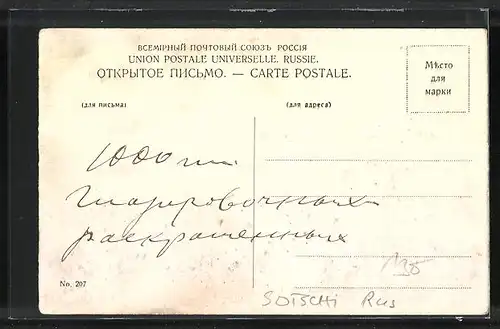 ВСЕМІРНЫЙ ПОЧТОВЫЙ СОЮЗЪ РОССІЯ
UNION POSTALE UNIVERSELLE. RUSSIE.
ОТКРЫТОЕ ПИСЬМО. — CARTE POSTALE.
Мѣсто
для
марки
(для письма)
(для адреса)
1000
раскрашенных
No. 207
135
SOTSCHI Rus